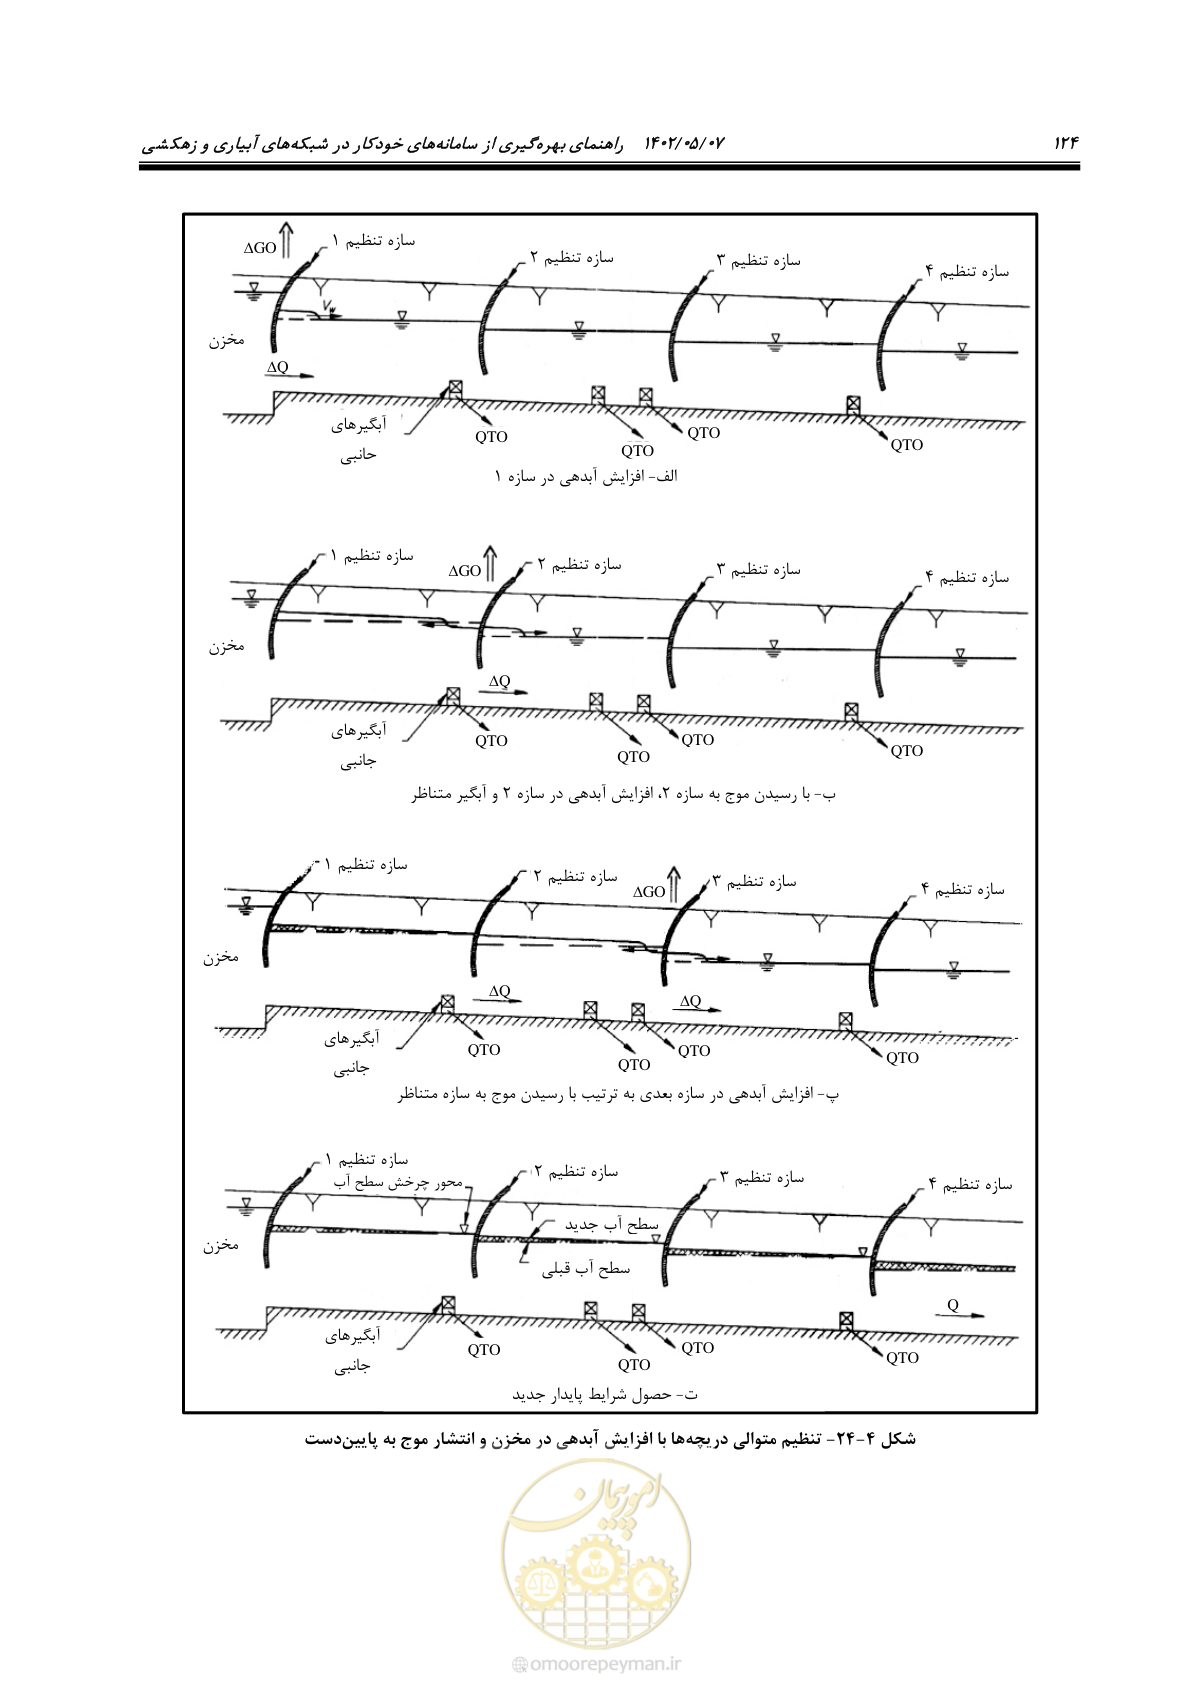 ۱۲۴
۱۴۰۲/۰۵/۰۷ راهنمای بهره‌گیری از سامانه‌های خودکار در شبکه‌های آبیاری و زهکشی
ΔGO
سازه تنظیم ۱
سازه تنظیم ۲
سازه تنظیم ۳
سازه تنظیم ۴
Vw
مخزن
ΔQ
آبگیرهای
جانبی
QTO
QTO
QTO
QTO
الف- افزایش آبدهی در سازه ۱
سازه تنظیم ۱
ΔGO
سازه تنظیم ۲
سازه تنظیم ۳
سازه تنظیم ۴
مخزن
ΔQ
آبگیرهای
جانبی
QTO
QTO
QTO
QTO
ب- با رسیدن موج به سازه ۲، افزایش آبدهی در سازه ۲ و آبگیر متناظر
سازه تنظیم ۱
سازه تنظیم ۲
ΔGO
سازه تنظیم ۳
سازه تنظیم ۴
مخزن
ΔQ
ΔQ
آبگیرهای
جانبی
QTO
QTO
QTO
QTO
پ- افزایش آبدهی در سازه بعدی به ترتیب با رسیدن موج به سازه متناظر
سازه تنظیم ۱
محور چرخش سطح آب
سازه تنظیم ۲
سازه تنظیم ۳
سازه تنظیم ۴
سطح آب جدید
سطح آب قبلی
مخزن
Q
آبگیرهای
جانبی
QTO
QTO
QTO
QTO
ت- حصول شرایط پایدار جدید
شکل ۴-۲۴- تنظیم متوالی دریچه‌ها با افزایش آبدهی در مخزن و انتشار موج به پایین‌دست
امور پیمان
omoorepeyman.ir